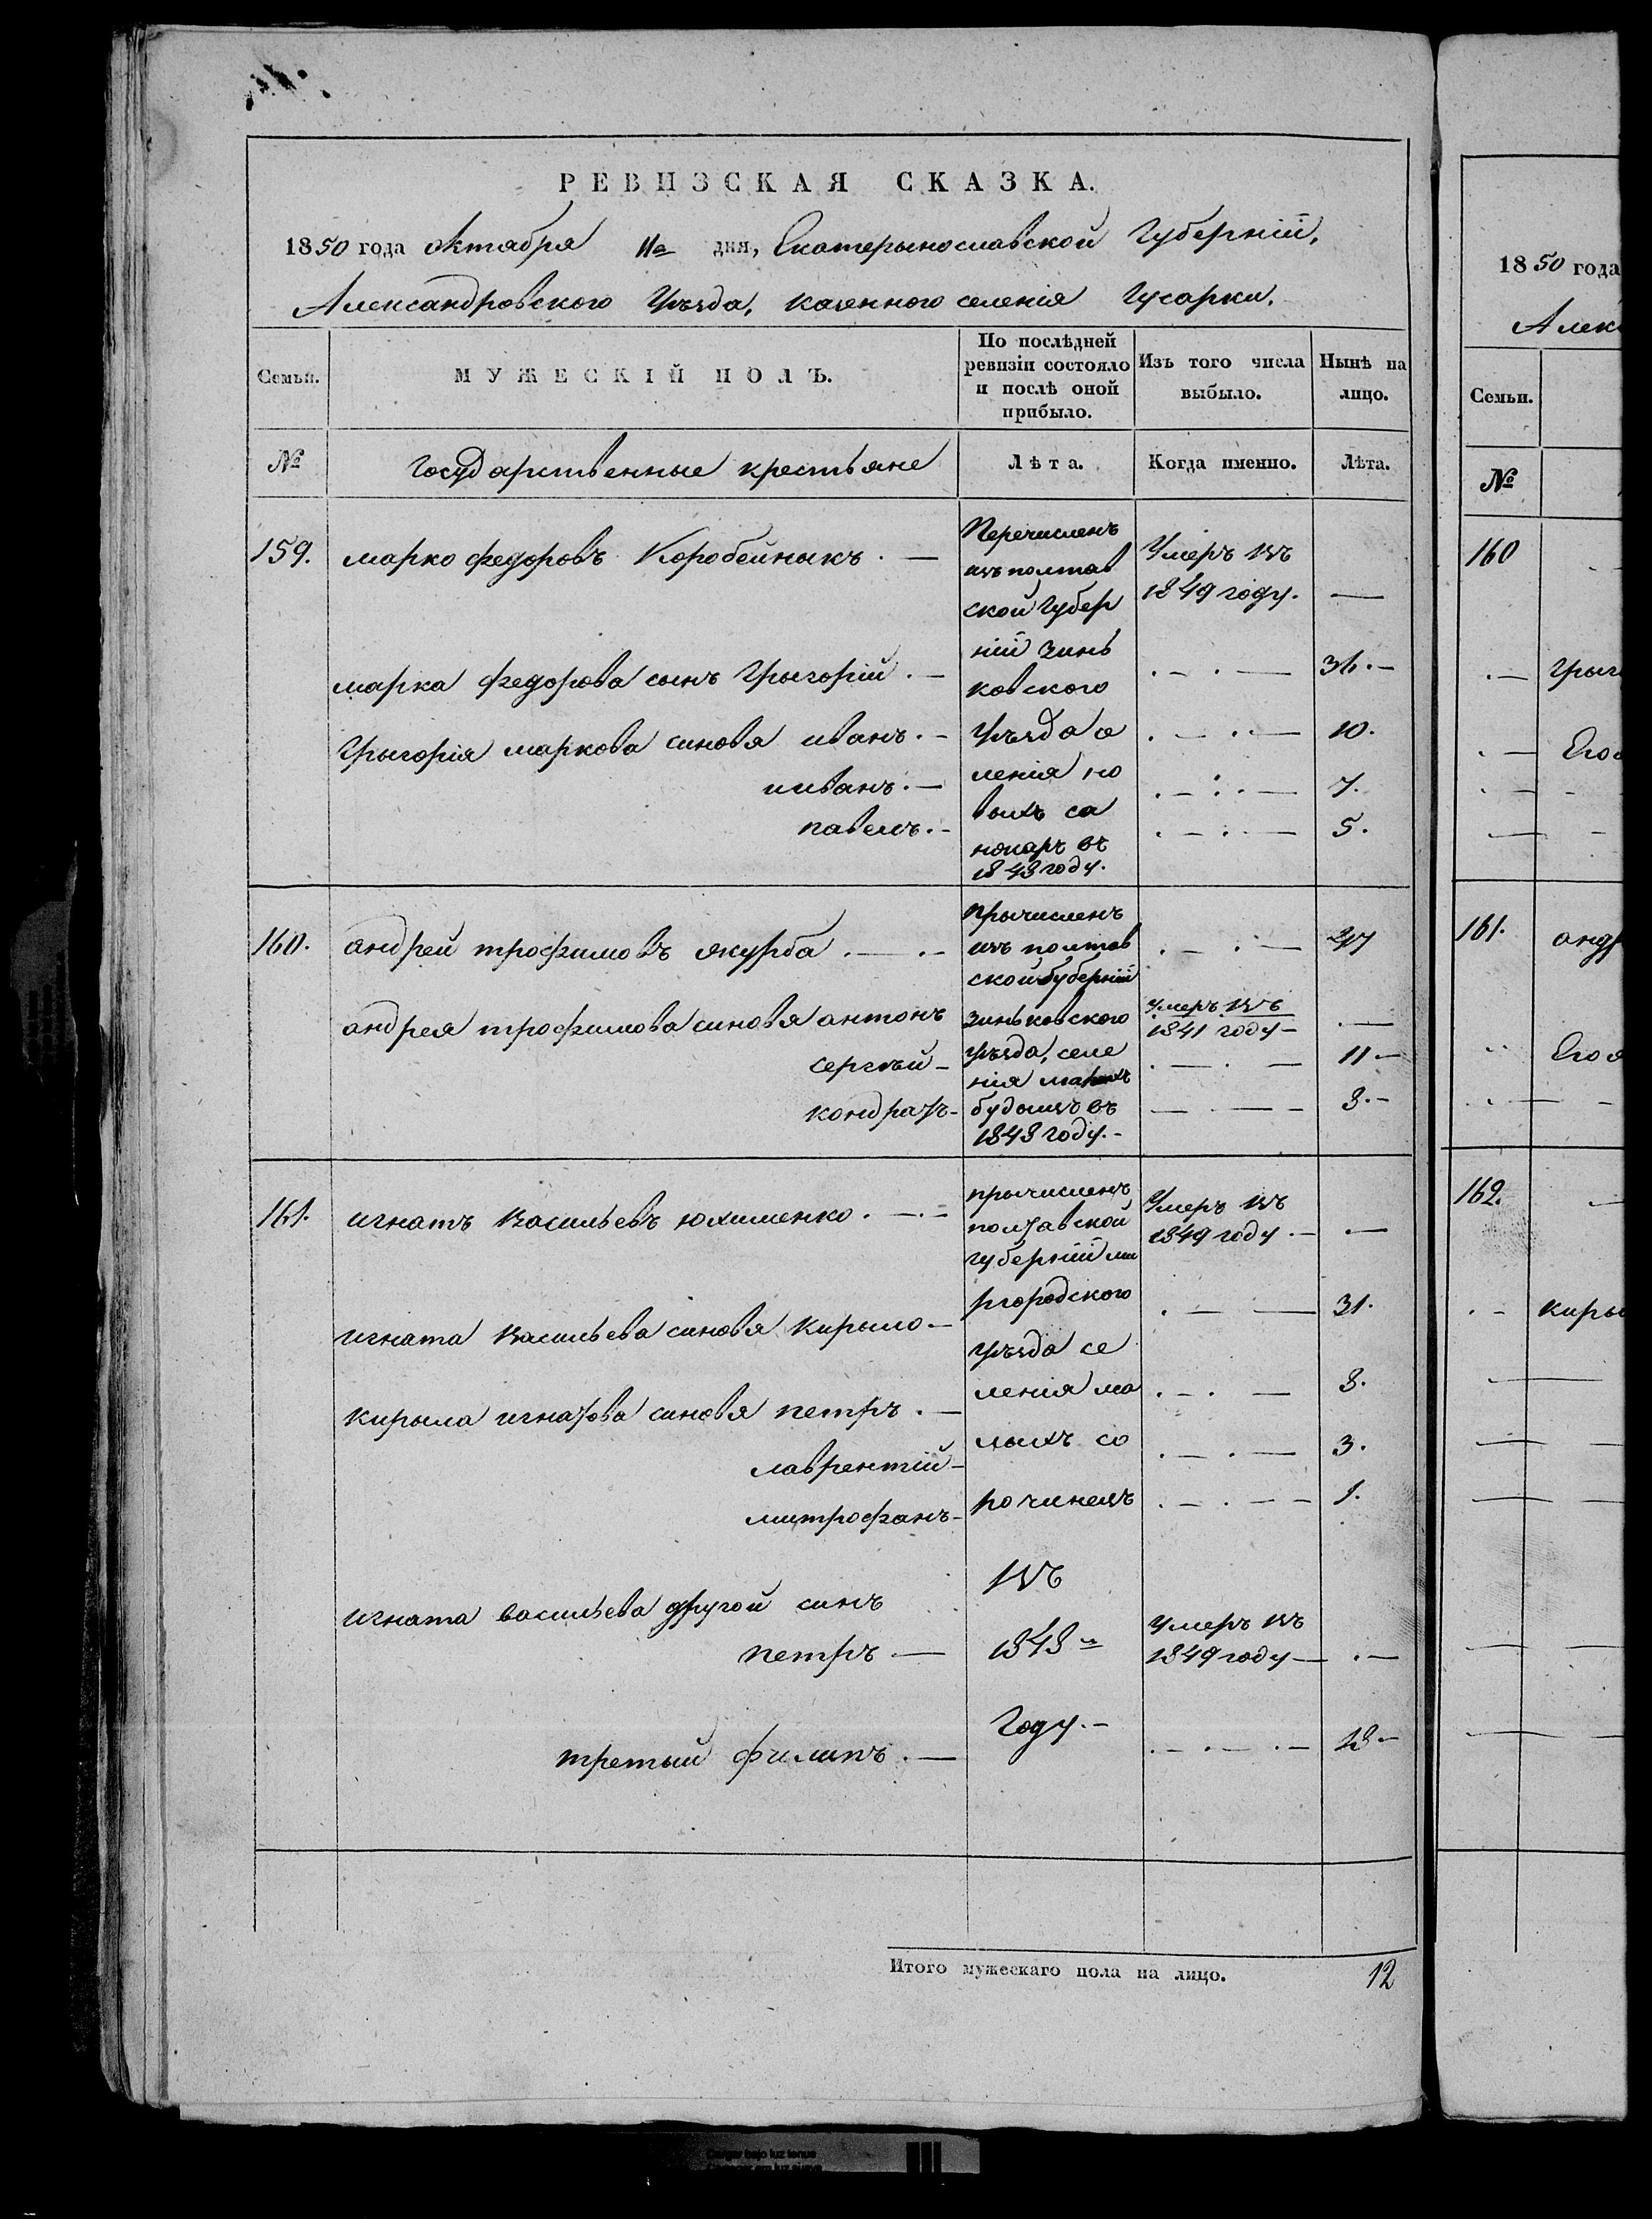 РЕВИЗСКАЯ СКАЗКА.
1850 года октября 11го дня, Екатерынославской Губерній,
Александровского Уѣзда, казенного селенія Гусарки.
Семьи.
МУЖЕСКІЙ ПОЛЪ.
По послѣдней
ревизіи состояло
и послѣ оной
прибыло.
Изъ того числа
выбыло.
Нынѣ на
лицо.
№
Государственные крестьяне
Лѣта.
Когда именно.
Лѣта.
159. марко федоровъ Коробейныкъ. —
Перечисленъ
изъ полтав
ской Губер
ній Зинь
ковского
Уѣзда се
ленія но
выхъ са
нжаръ въ
1848 году.
Умеръ въ
1849 году. —
марка федорова сынъ Грыгорій. — 36. —
Грыгорія маркова синовя иванъ. — 10.
ииванъ. — 7.
павелъ. — 5.
160. андрей трофимовъ якурба. — 47
прычисленъ
изъ полтав
ской губерній
Зиньковского
Уѣзда, селе
нія
будыщъ въ
1848 году. —
андрея трофимова синовя антонъ
Умеръ въ
1841 году —
сергѣй — 11 —
кондратъ — 8. —
161. игнатъ васильевъ юхименко. —
прычисленъ
полтавской
губерній ми
ргородского
Уѣзда се
ленія ма
лыхъ со
рочинецъ
въ
1848м
Году. —
Умеръ въ
1849 году. —
игната васильева синовя Кирыло — 31.
кирыла игнатова синовя петръ. — 8.
лаврентій — 3.
митрофанъ — 1.
игната васильева другой синъ
петръ —
Умеръ въ
1849 году —
третый филипъ. — 18 —
Итого мужескаго пола на лицо. 12
1850 года
Алекс
Семьи.
№
160
Грыг
Его
161. андр
Его
162.
киры